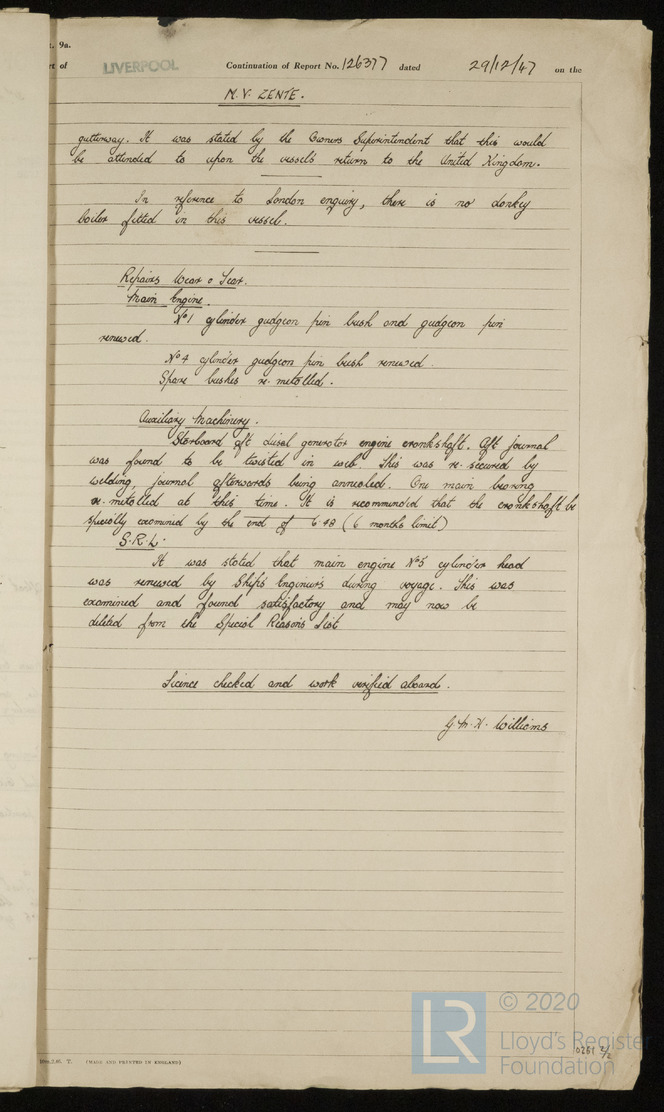 t. 9a.
rt of LIVERPOOL Continuation of Report No. 126377 dated 29/12/47 on the
M.V. ZENTE.
gutterway. It was stated by the Owners Superintendent that this would
be attended to upon the vessels return to the United Kingdom.
In reference to London enquiry, there is no donkey
boiler fitted in this vessel.
Repairs Wear & Tear.
Main Engine.
No 1 cylinder gudgeon pin bush and gudgeon pin
renewed.
No 4 cylinder gudgeon pin bush renewed.
Spare bushes re-metalled.
Auxiliary Machinery.
Starboard aft diesel generator engine crankshaft. Aft journal
was found to be twisted in web. This was re-secured by
welding, journal afterwards being annealed. One main bearing
re-metalled at this time. It is recommended that the crankshaft be
specially examined by the end of 6.48 (6 months limit)
S.R.L.
It was stated that main engine No 5 cylinder head
was renewed by Ships Engineers during voyage. This was
examined and found satisfactory and may now be
deleted from the Special Reasons List
Licence checked and work verified aboard.
G.M.H. Williams
(MADE AND PRINTED IN ENGLAND)
0251 2/2
LR © 2020
Lloyd's Register
Foundation